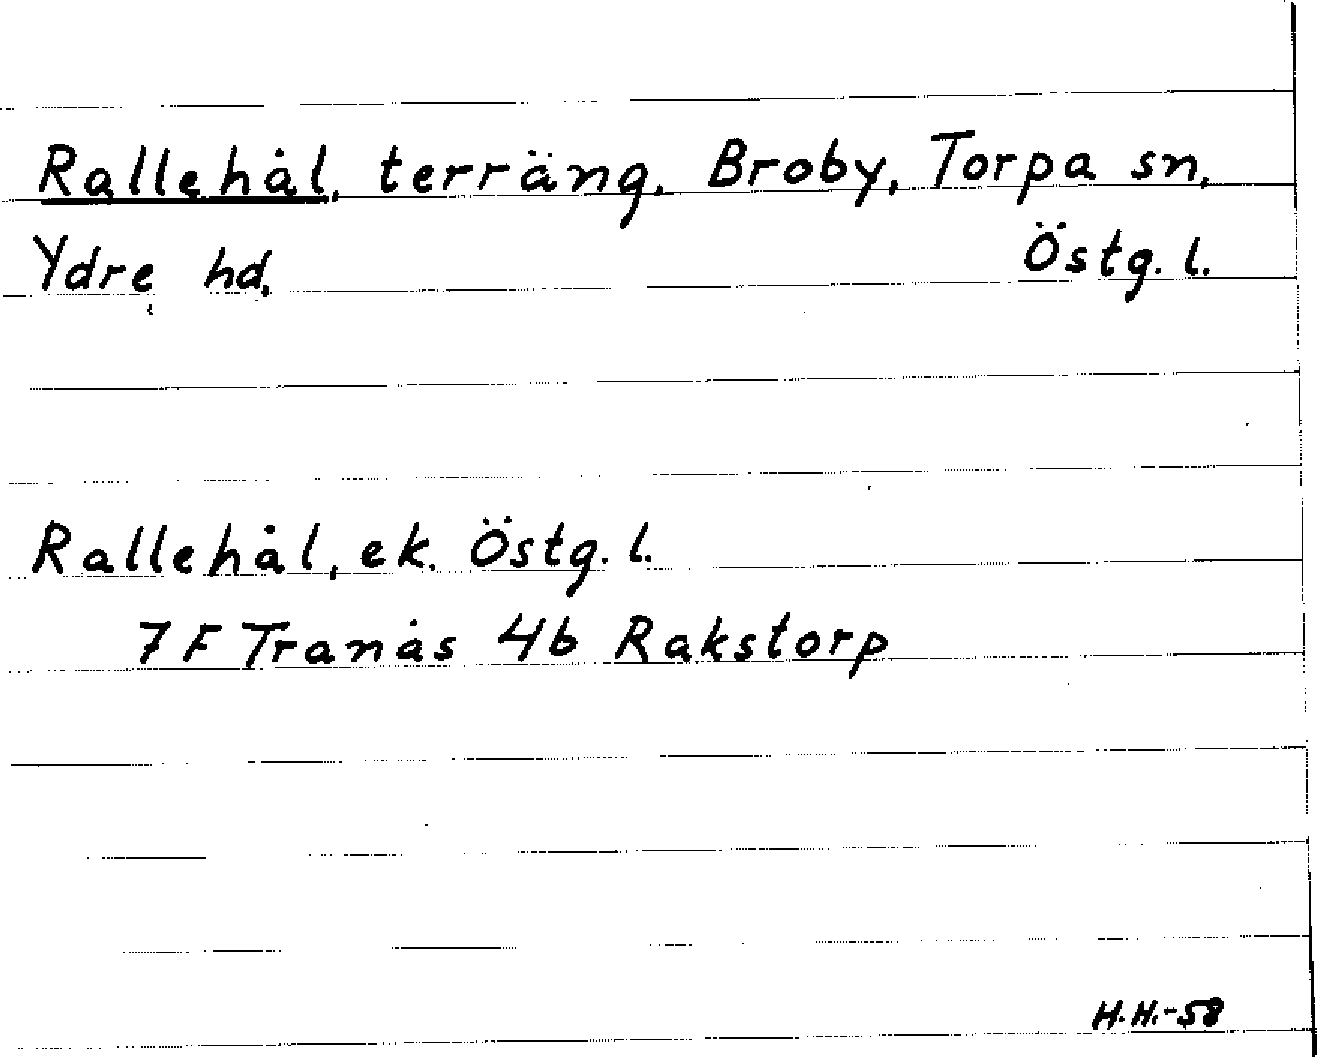 Rallehål, terräng, Broby, Torpa sn,
Ydre hd, Östg. l.
Rallehål, ek. Östg. l.
7 F Tranås 4b Rakstorp
H.H.-58